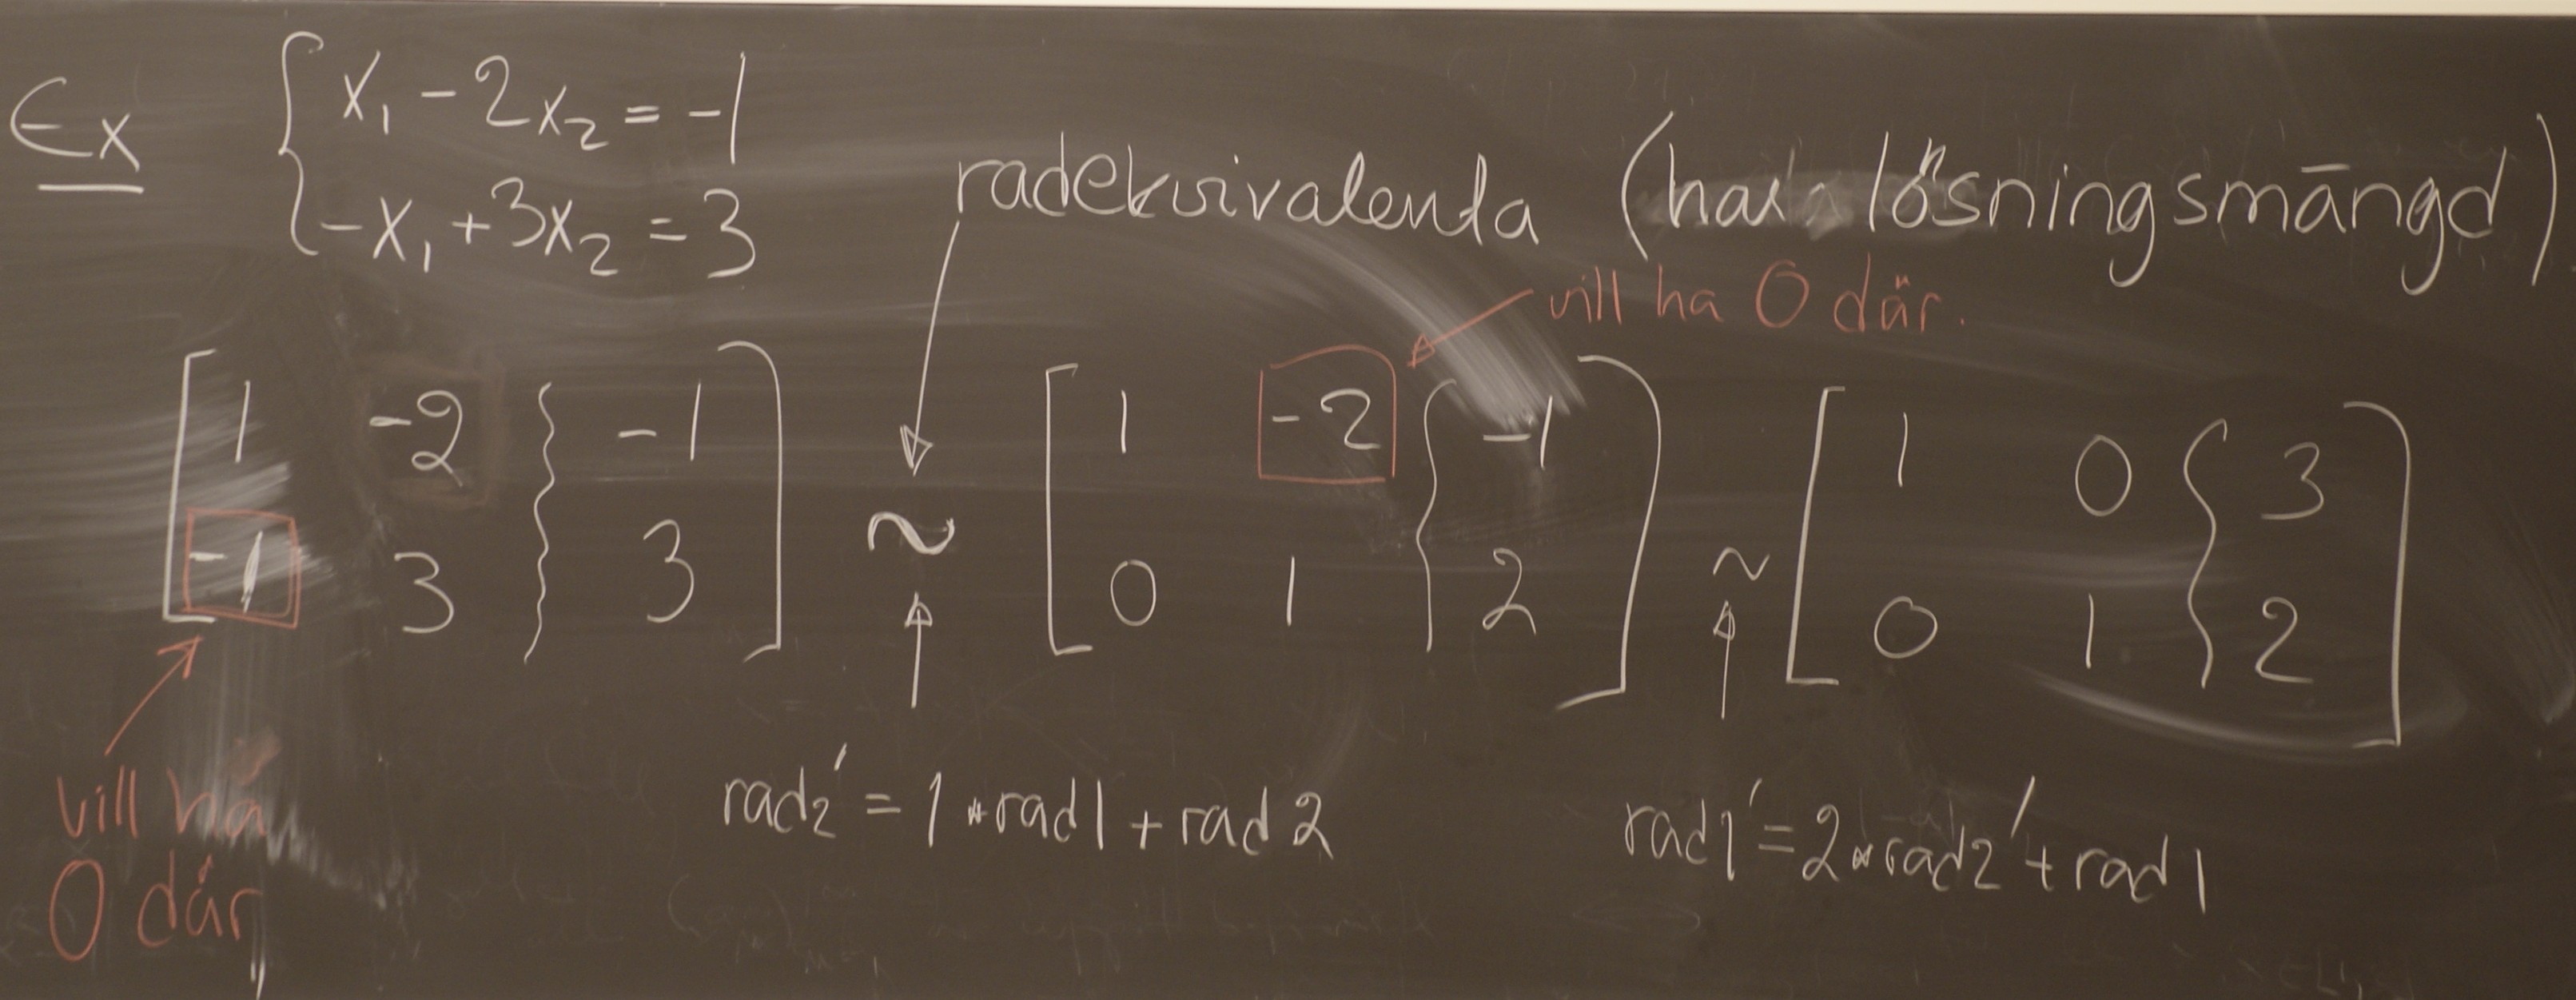 Ex { x₁ - 2x₂ = -1
-x₁ + 3x₂ = 3
radekvivalenta (har lösningsmängd)
vill ha 0 där.
[ 1 -2 } -1 ] ~ [ 1 -2 { -1 ] ~ [ 1 0 { 3 ]
[ -1 3 } 3 ] [ 0 1 { 2 ] [ 0 1 { 2 ]
vill ha
0 där
rad2' = 1*rad1 + rad 2
rad1' = 2*rad2' + rad1